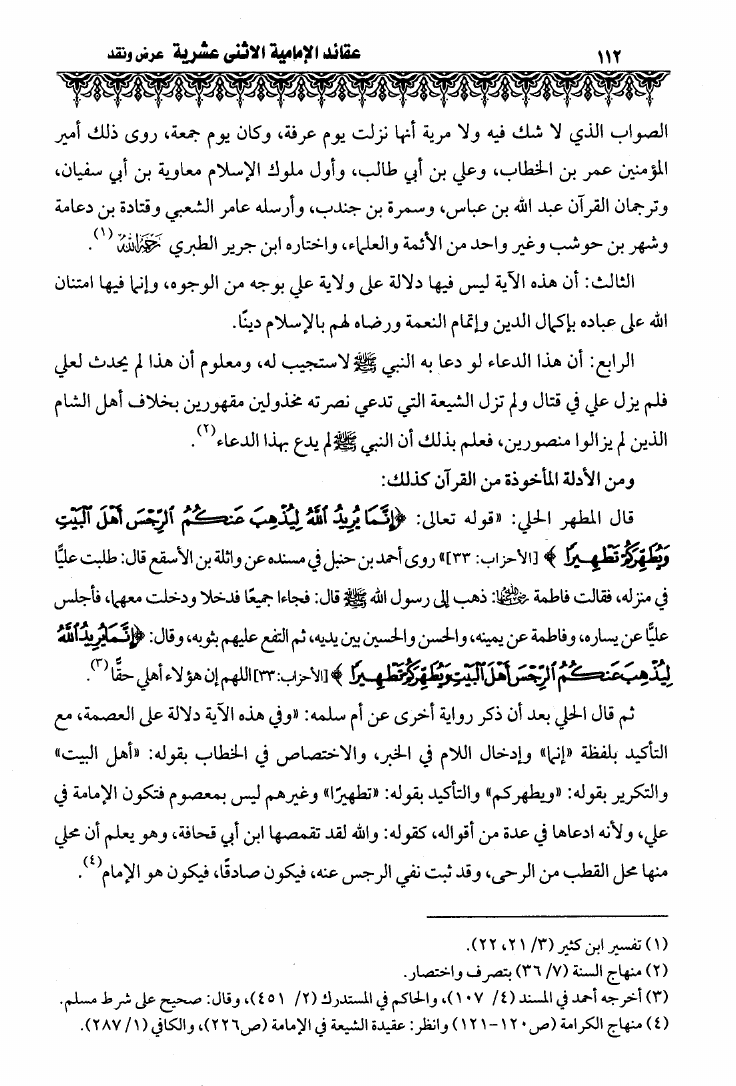 ١١٢
عقائد الإمامية الاثنى عشرية عرض ونقد
الصواب الذي لا شك فيه ولا مرية أنها نزلت يوم عرفة، وكان يوم جمعة، روى ذلك أمير
المؤمنين عمر بن الخطاب، وعلي بن أبي طالب، وأول ملوك الإسلام معاوية بن أبي سفيان،
وترجمان القرآن عبد الله بن عباس، وسمرة بن جندب، وأرسله عامر الشعبي وقتادة بن دعامة
وشهر بن حوشب وغير واحد من الأئمة والعلماء، واختاره ابن جرير الطبري رحمه الله(١).
الثالث: أن هذه الآية ليس فيها دلالة على ولاية علي بوجه من الوجوه، وإنما فيها امتنان
الله على عباده بإكمال الدين وإتمام النعمة ورضاه لهم بالإسلام دينًا.
الرابع: أن هذا الدعاء لو دعا به النبي ﷺ لاستجيب له، ومعلوم أن هذا لم يحدث لعلي
فلم يزل علي في قتال ولم تزل الشيعة التي تدعي نصرته مخذولين مقهورين بخلاف أهل الشام
الذين لم يزالوا منصورين، فعلم بذلك أن النبي ﷺ لم يدع بهذا الدعاء(٢).
ومن الأدلة المأخوذة من القرآن كذلك:
قال المطهر الحلي: «قوله تعالى: ﴿إِنَّمَا يُرِيدُ اللَّهُ لِيُذْهِبَ عَنكُمُ الرِّجْسَ أَهْلَ الْبَيْتِ
وَيُطَهِّرَكُمْ تَطْهِيرًا﴾ [الأحزاب: ٣٣]» روى أحمد بن حنبل في مسنده عن واثلة بن الأسقع قال: طلبت عليًّا
في منزله، فقالت فاطمة رضي الله عنها: ذهب إلى رسول الله ﷺ قال: فجاءا جميعًا فدخلا ودخلت معهما، فأجلس
عليًّا عن يساره، وفاطمة عن يمينه، والحسن والحسين بين يديه، ثم التفع عليهم بثوبه، وقال: ﴿إِنَّمَا يُرِيدُ اللَّهُ
لِيُذْهِبَ عَنكُمُ الرِّجْسَ أَهْلَ الْبَيْتِ وَيُطَهِّرَكُمْ تَطْهِيرًا﴾ [الأحزاب: ٣٣] اللهم إن هؤلاء أهلي حقًّا(٣).
ثم قال الحلي بعد أن ذكر رواية أخرى عن أم سلمه: «وفي هذه الآية دلالة على العصمة، مع
التأكيد بلفظة «إنما» وإدخال اللام في الخبر، والاختصاص في الخطاب بقوله: «أهل البيت»
والتكرير بقوله: «ويطهركم» والتأكيد بقوله: «تطهيرًا» وغيرهم ليس بمعصوم فتكون الإمامة في
علي، ولأنه ادعاها في عدة من أقواله، كقوله: والله لقد تقمصها ابن أبي قحافة، وهو يعلم أن محلي
منها محل القطب من الرحى، وقد ثبت نفي الرجس عنه، فيكون صادقًا، فيكون هو الإمام(٤).
(١) تفسير ابن كثير (٣/ ٢١، ٢٢).
(٢) منهاج السنة (٧/ ٣٦) بتصرف واختصار.
(٣) أخرجه أحمد في المسند (٤/ ١٠٧)، والحاكم في المستدرك (٢/ ٤٥١)، وقال: صحيح على شرط مسلم.
(٤) منهاج الكرامة (ص١٢٠-١٢١) وانظر: عقيدة الشيعة في الإمامة (ص٢٢٦)، والكافي (١/ ٢٨٧).